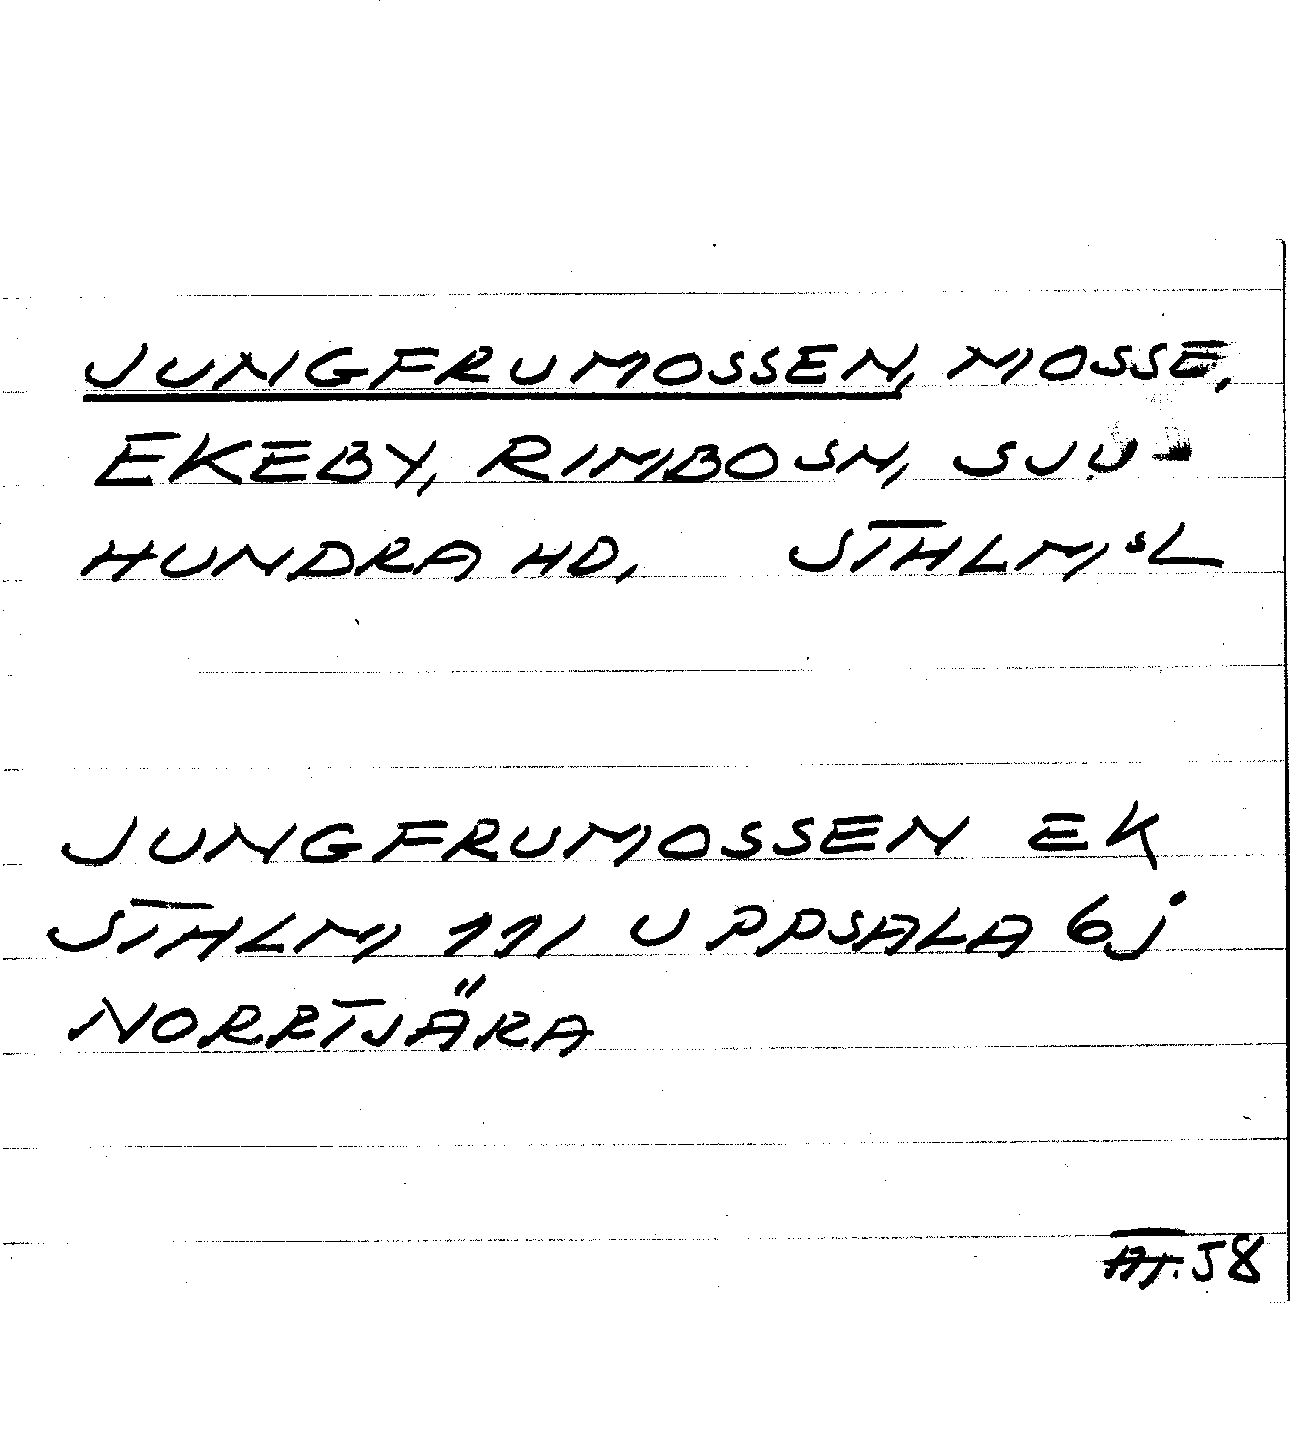 JUNGFRUMOSSEN, MOSSE,
EKEBY, RIMBO SN, SJU-
HUNDRA HD, STHLMS L
JUNGFRUMOSSEN EK
STHLM 111 UPPSALA 6j
NORRTJÄRA
58